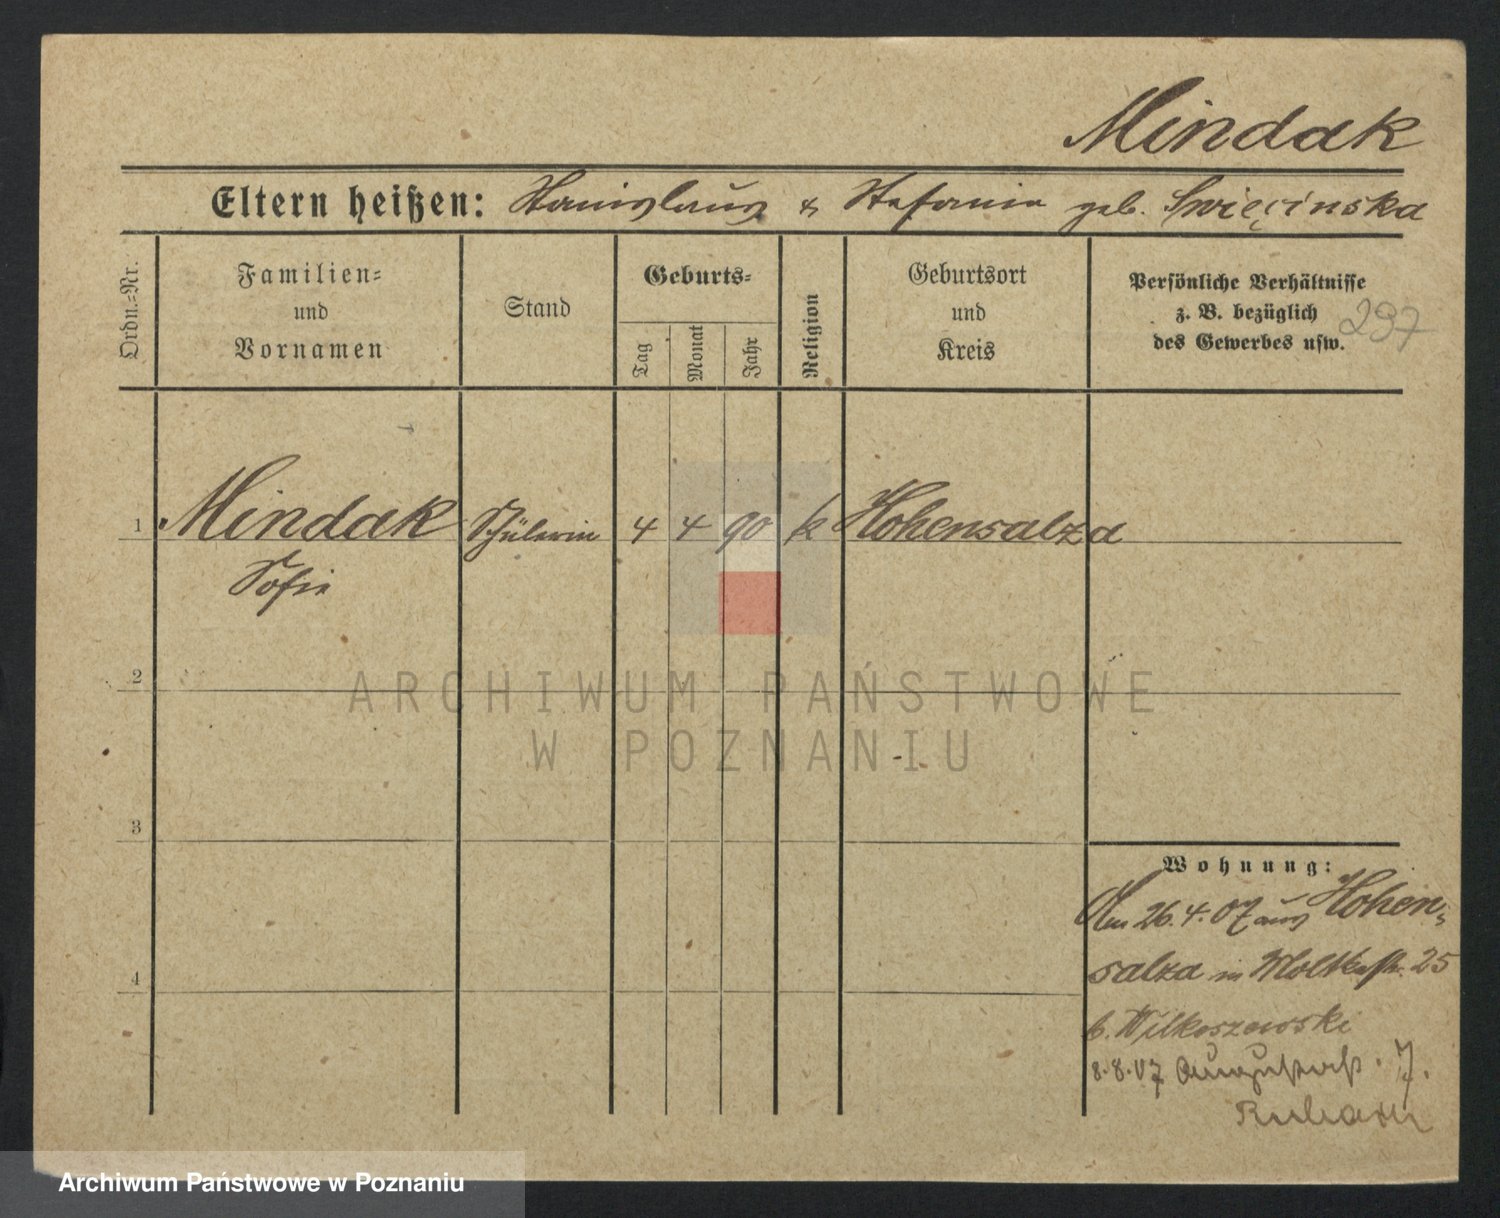 Mindak
Eltern heißen: Stanislaus & Stefanie geb. Święcinska
Ordn.=Nr.
Familien=
und
Vornamen
Stand
Geburts=
Tag
Monat
Jahr
Religion
Geburtsort
und
Kreis
Persönliche Verhältnisse
z. B. bezüglich
des Gewerbes usw.
297
1 Mindak Schülerin 4 4 90 k Hohensalza
Sofie
2
3
4
Wohnung:
Am 26.4.07 aus Hohen-
salza in Moltkestr. 25
b. Wilkoszewski
8.8.07 Augustastr. 7.
ARCHIWUM PAŃSTWOWE
W POZNANIU
Archiwum Państwowe w Poznaniu